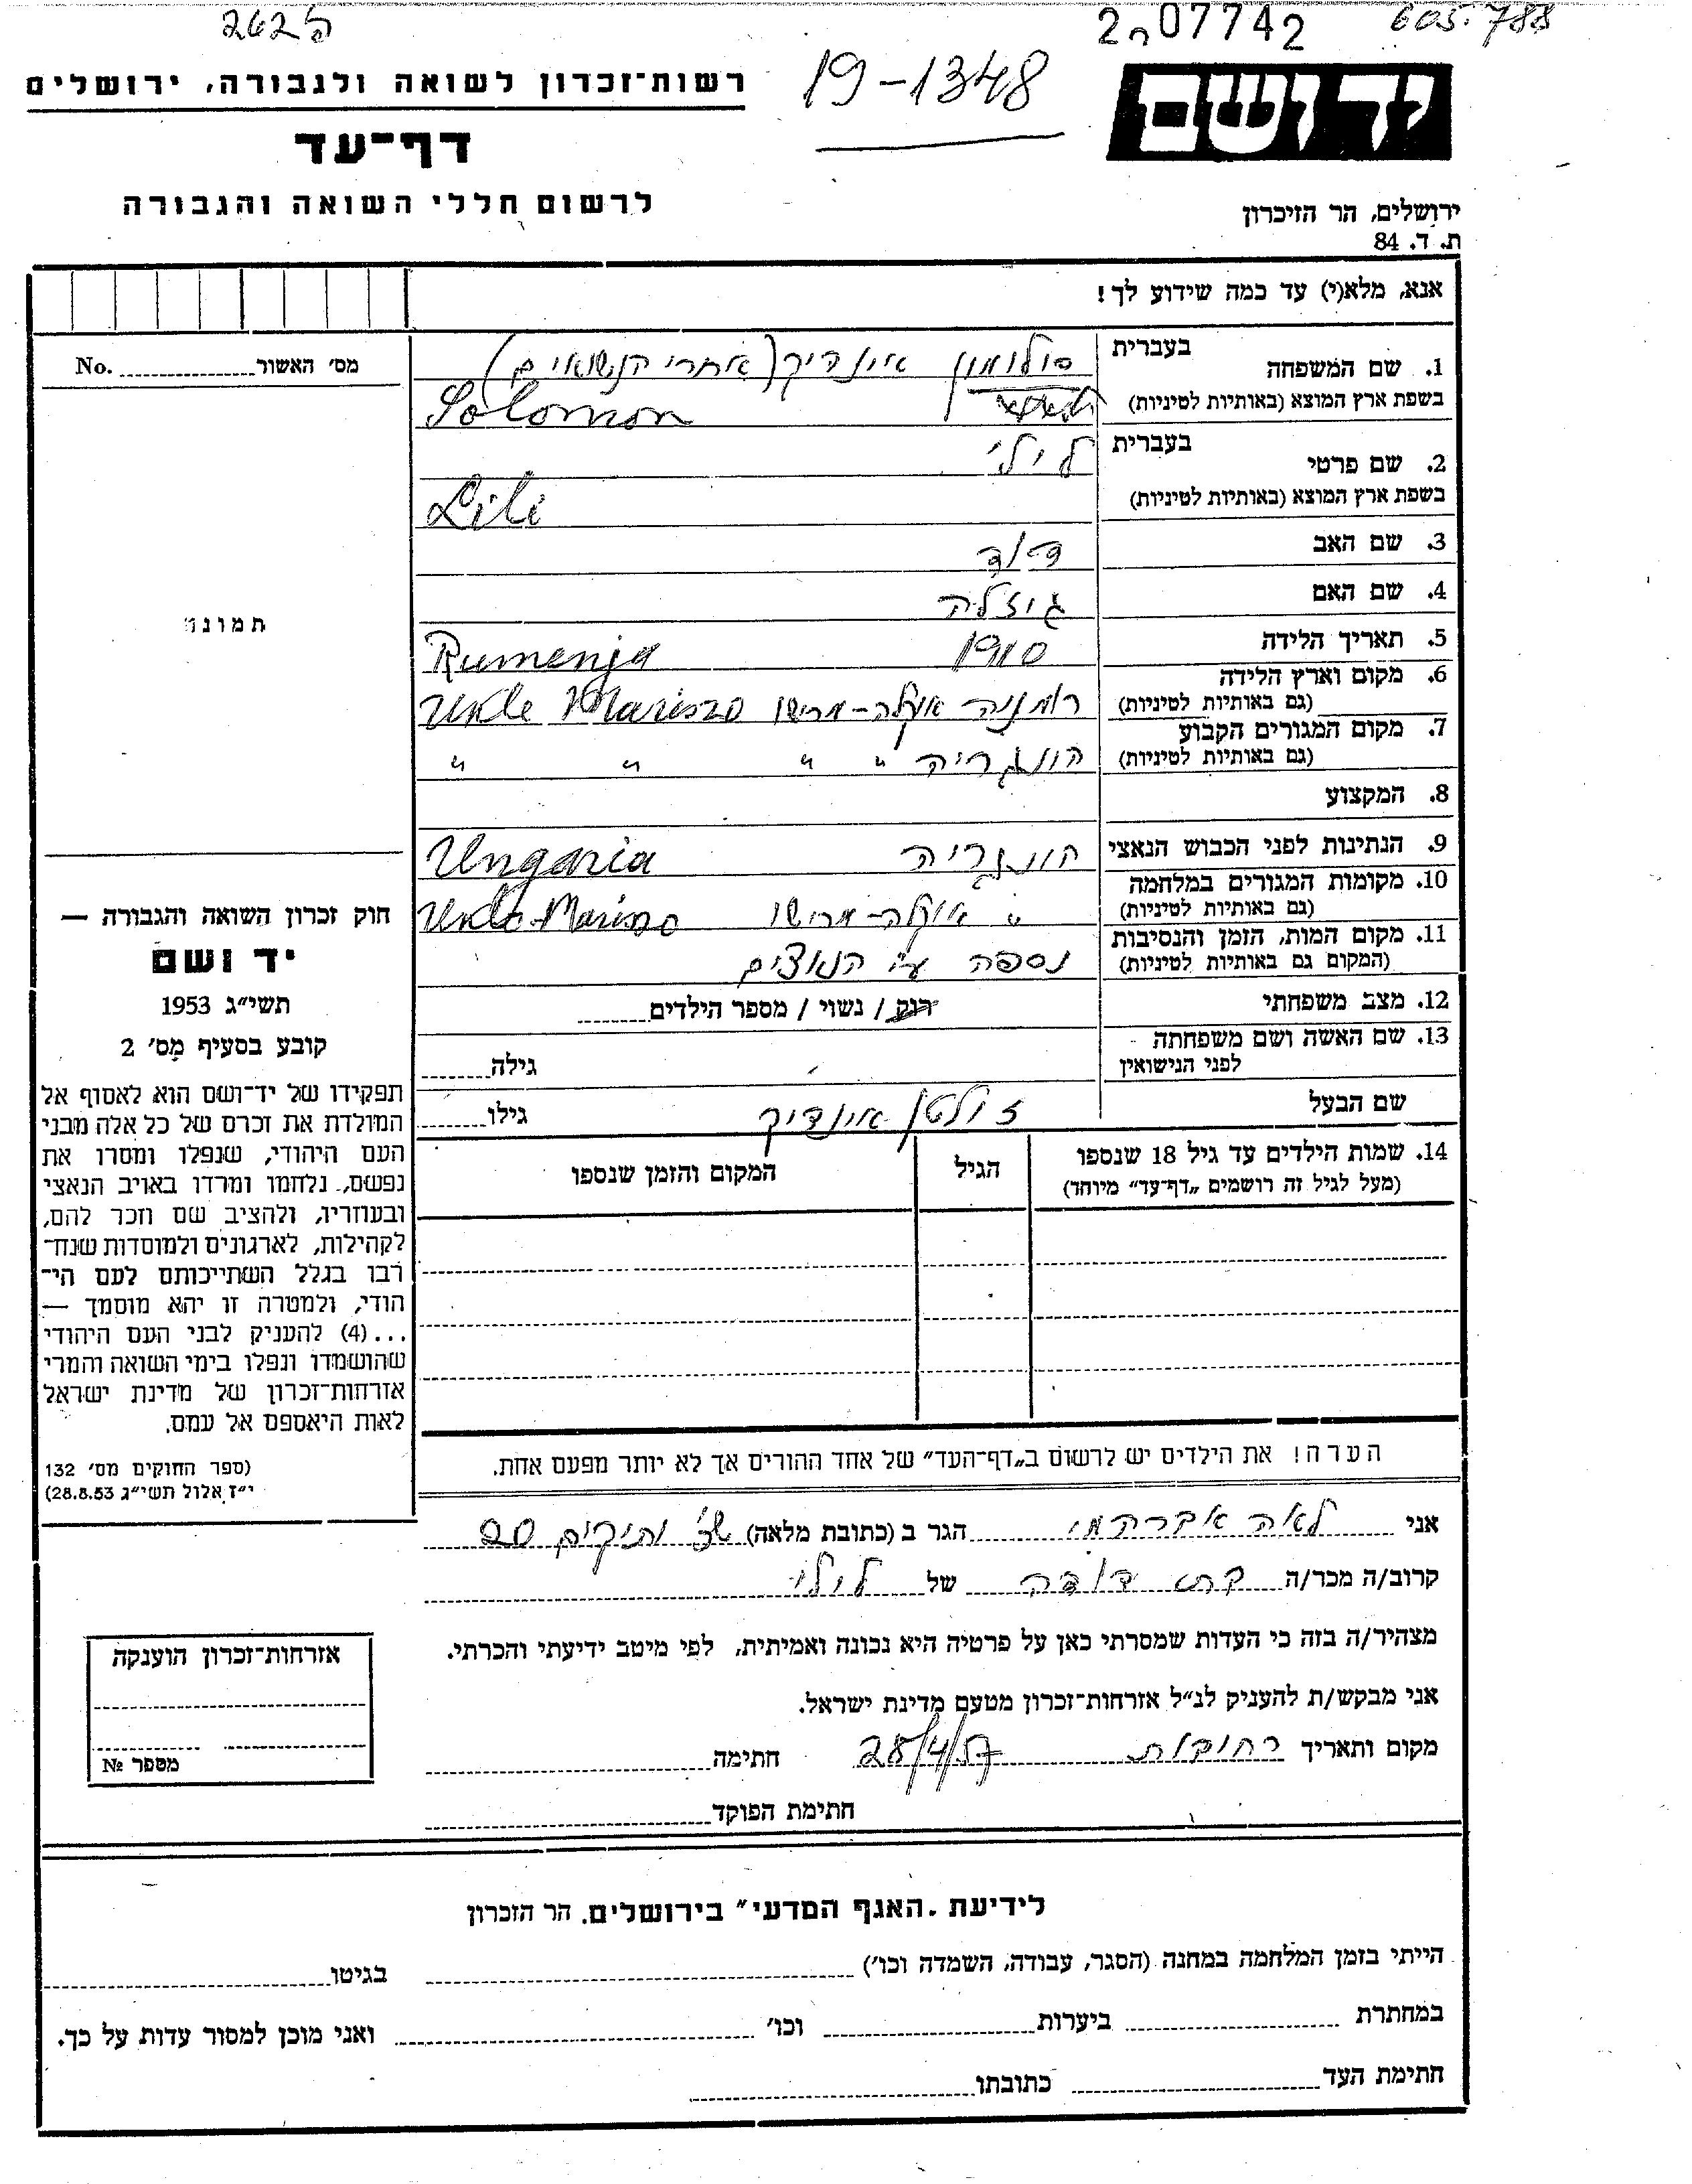 262ק
2ח07742
605.788
רשות־זכרון לשואה ולגבורה, ירושלים
19-1348
יד ושם
דף־עד
לרשום חללי השואה והגבורה
ירושלים, הר הזיכרון
ת. ד. 84
אנא, מלא(י) עד כמה שידוע לך!
מס׳ האשור No.
1. שם המשפחה
בעברית סולומון אינדיק (אחרי הנשואים)
בשפת ארץ המוצא (באותיות לטיניות) Solomon
2. שם פרטי
בעברית לילי
בשפת ארץ המוצא (באותיות לטיניות) Lili
3. שם האב דוד
4. שם האם גיזלה
תמונה
5. תאריך הלידה 1910 Rumenja
6. מקום וארץ הלידה
(גם באותיות לטיניות) רומניה אוקלה-מרישו Uncle Mariszo
7. מקום המגורים הקבוע
(גם באותיות לטיניות) הונגריה " " " "
8. המקצוע
9. הנתינות לפני הכבוש הנאצי הונגריה Ungaria
10. מקומות המגורים במלחמה
(גם באותיות לטיניות) " אוקלה-מרישו
11. מקום המות, הזמן והנסיבות
(המקום גם באותיות לטיניות) נספה ע״י הנאצים
12. מצב משפחתי רוק / נשוי / מספר הילדים
13. שם האשה ושם משפחתה
לפני הנישואין גילה
שם הבעל זולטן אינדיק גילו
14. שמות הילדים עד גיל 18 שנספו
(מעל לגיל זה רושמים „דף־עד״ מיוחד)
הגיל
המקום והזמן שנספו
חוק זכרון השואה והגבורה —
יד ושם
תשי״ג 1953
קובע בסעיף מס׳ 2
תפקידו של יד־ושם הוא לאסוף אל
המולדת את זכרם של כל אלה מבני
העם היהודי, שנפלו ומסרו את
נפשם, נלחמו ומרדו באויב הנאצי
ובעוזריו, ולהציב שם וזכר להם,
לקהילות, לארגונים ולמוסדות שנח־
רבו בגלל השתייכותם לעם הי־
הודי, ולמטרה זו יהא מוסמך —
...(4) להעניק לבני העם היהודי
שהושמדו ונפלו בימי השואה והמרי
אזרחות־זכרון של מדינת ישראל
לאות היאספם אל עמם.
(ספר החוקים מס׳ 132
י״ז אלול תשי״ג 28.8.53)
הערה! את הילדים יש לרשום ב„דף־העד״ של אחד ההורים אך לא יותר מפעם אחת.
אני לאה אברהמי הגר ב (כתובת מלאה) שכ׳ ותיקים 20
קרוב/ה מכר/ה בת דודה של לילי
מצהיר/ה בזה כי העדות שמסרתי כאן על פרטיה היא נכונה ואמיתית, לפי מיטב ידיעתי והכרתי.
אני מבקש/ת להעניק לנ״ל אזרחות־זכרון מטעם מדינת ישראל.
מקום ותאריך רחובות 28/4/57 חתימה
חתימת הפוקד
אזרחות־זכרון הוענקה
מספר №
לידיעת „האגף המדעי״ בירושלים, הר הזכרון
הייתי בזמן המלחמה במחנה (הסגר, עבודה, השמדה וכו׳) בגיטו
במחתרת ביערות וכו׳ ואני מוכן למסור עדות על כך.
חתימת העד כתובתו